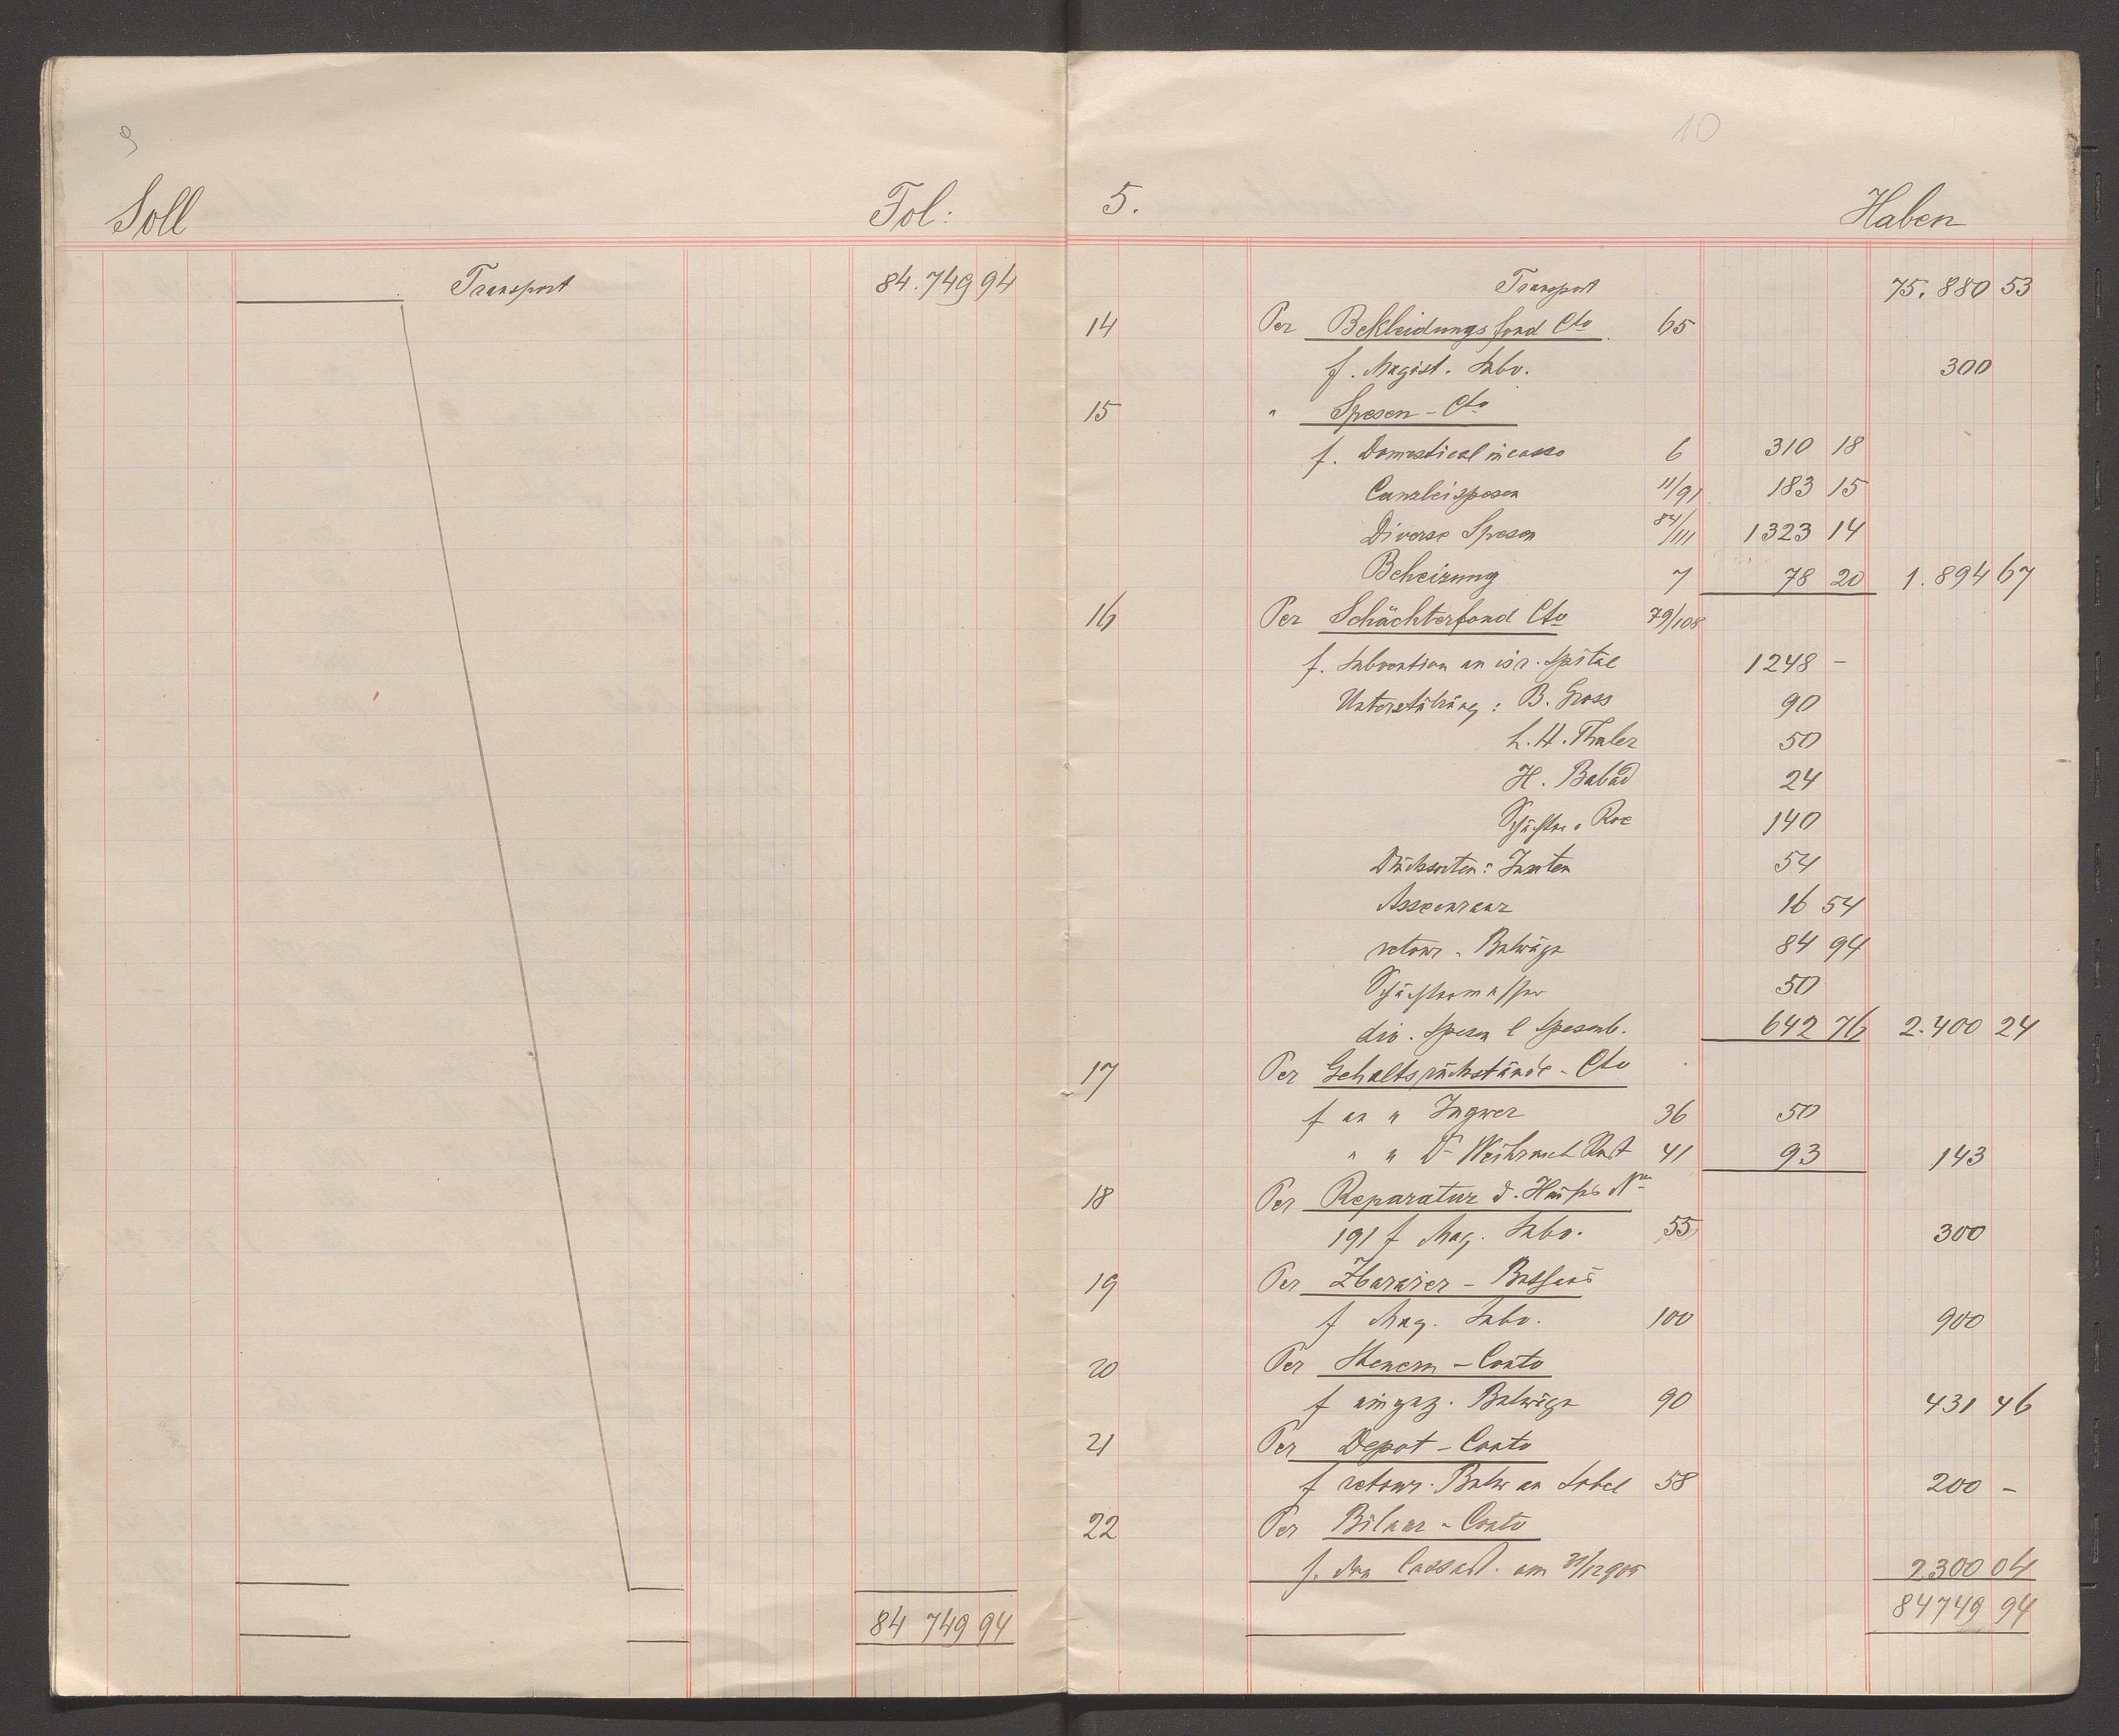 9
Soll Fol:
Transport 84.749 94
84 749 94
10
5. Haben
Transport 75.880 53
14 Per Bekleidungsfond Cto 65
f. Magist. Subv. 300
15 " Spesen - Cto
f. Domestical incasso 6 310 18
Canzleispesen 11/91 183 15
Diverse Spesen 84/111 1323 14
Beheizung 7 78 20 1.894 67
16 Per Schächterfond Cto 79/108
f. Subvention an isr. Spital 1248 -
Unterstützung: B. Gross 90
L. H. Thaler 50
H. Babad 24
Schächter 140
Drucksorten: 54
Assecuranz 16 54
retour. Beträge 84 94
Schächtermesser 50
div. Spesen l Spesenb. 642 76 2.400 24
17 Per Gehaltsrückstände - Cto
f an " Ingwer 36 50
" " Dr 41 93 143
18 Per Reparatur d. Hauses Nro
191 f Mag. Subv. 55 300
19 Per Zbarazer - Bethaus
f Mag. Subv. 100 900
20 Per Steuern - Conto
f eingez. Beträge 90 431 46
21 Per Depot - Conto
f retour. Betr an Sobel 58 200 -
22 Per Bilanz - Conto
f. den Cassast. am 31/12 905 2300 04
84749 94